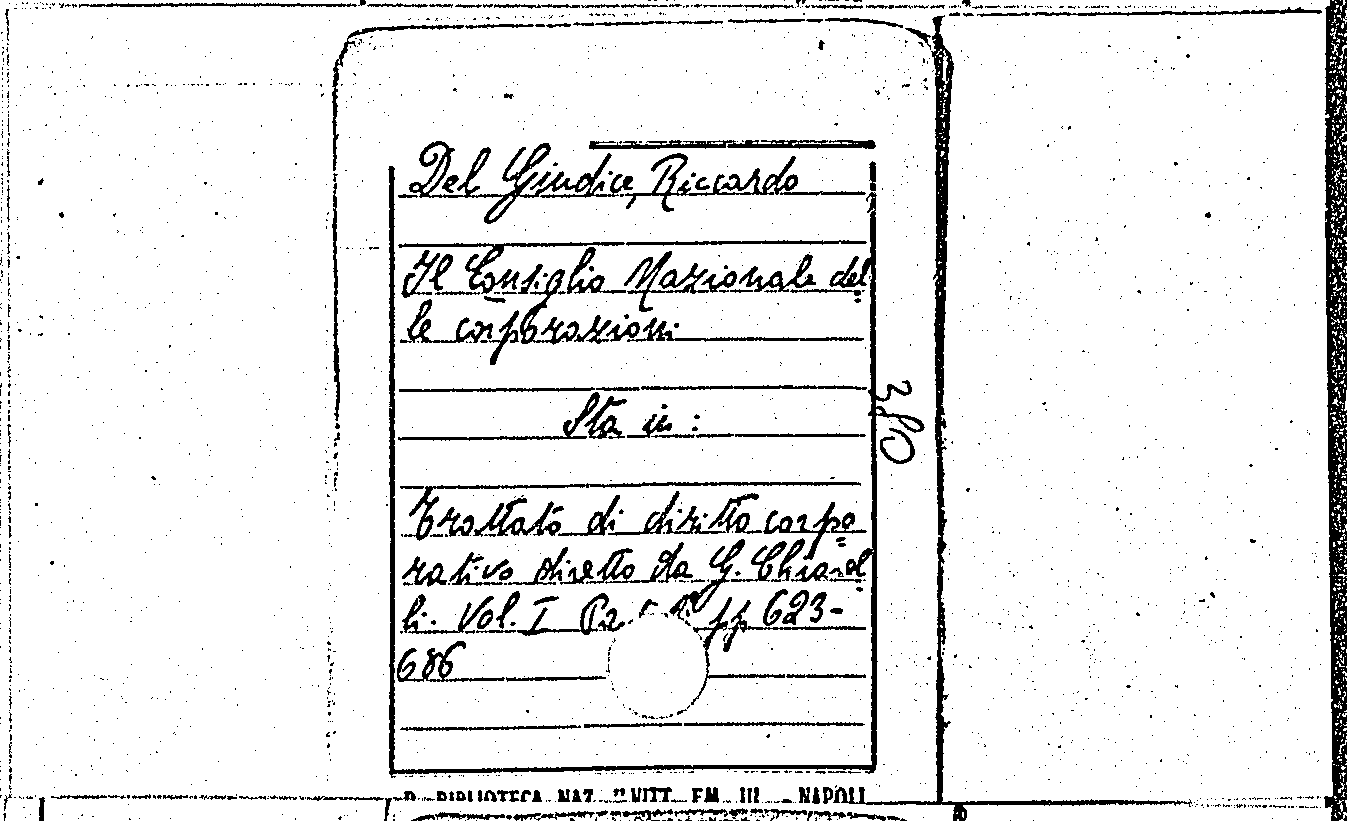 Del Giudice, Riccardo
Il Consiglio Nazionale del
le corporazioni
Sta in :
380
Trattato di diritto corpo
rativo diretto da G. Chiarel
li. Vol. I pp 623-
686
R. BIBLIOTECA NAZ. "VITT. EM. III. - NAPOLI